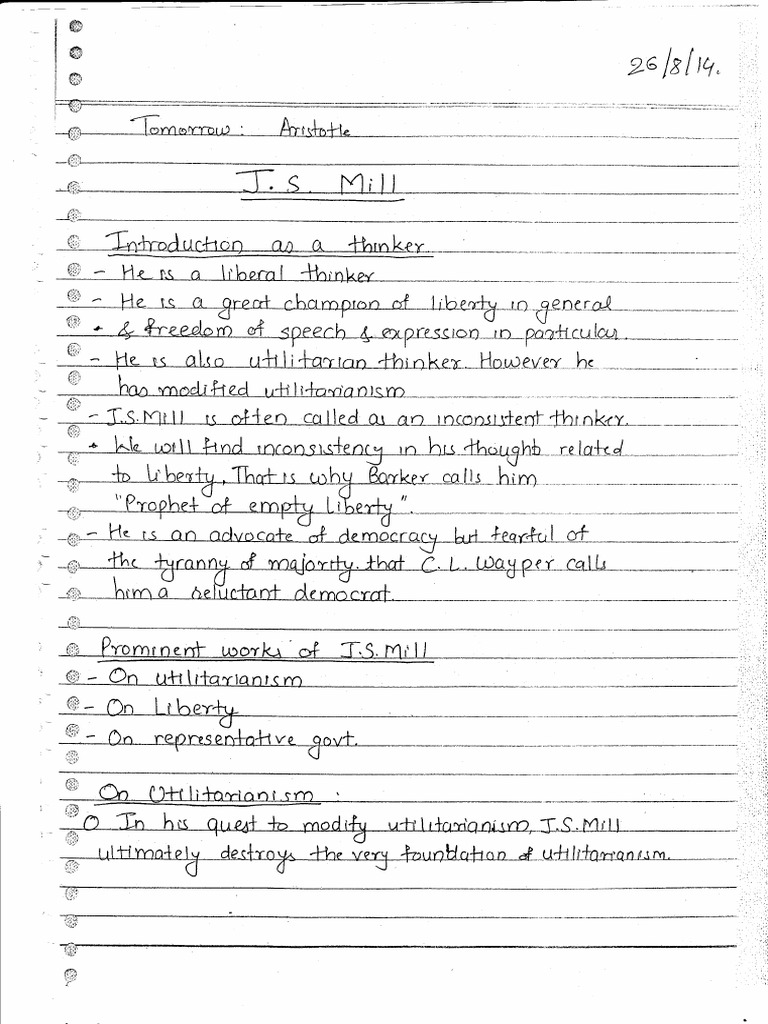 26/8/14.
Tomorrow: Aristotle
J. S. Mill
Introduction as a thinker
- He is a liberal thinker
- He is a great champion of liberty in general
• & freedom of speech & expression in particular.
- He is also utilitarian thinker. However he
has modified utilitarianism
- J.S.Mill is often called as an inconsistent thinker.
• We will find inconsistency in his thought related
to liberty. That is why Barker calls him
"Prophet of empty liberty".
- He is an advocate of democracy but fearful of
the tyranny of majority. that C. L. Wayper calls
him a reluctant democrat.
Prominent works of J.S.Mill
- On utilitarianism
- On Liberty
- On representative govt.
On Utilitarianism :
O In his quest to modify utilitarianism, J.S.Mill
ultimately destroys the very foundation of utilitarianism.